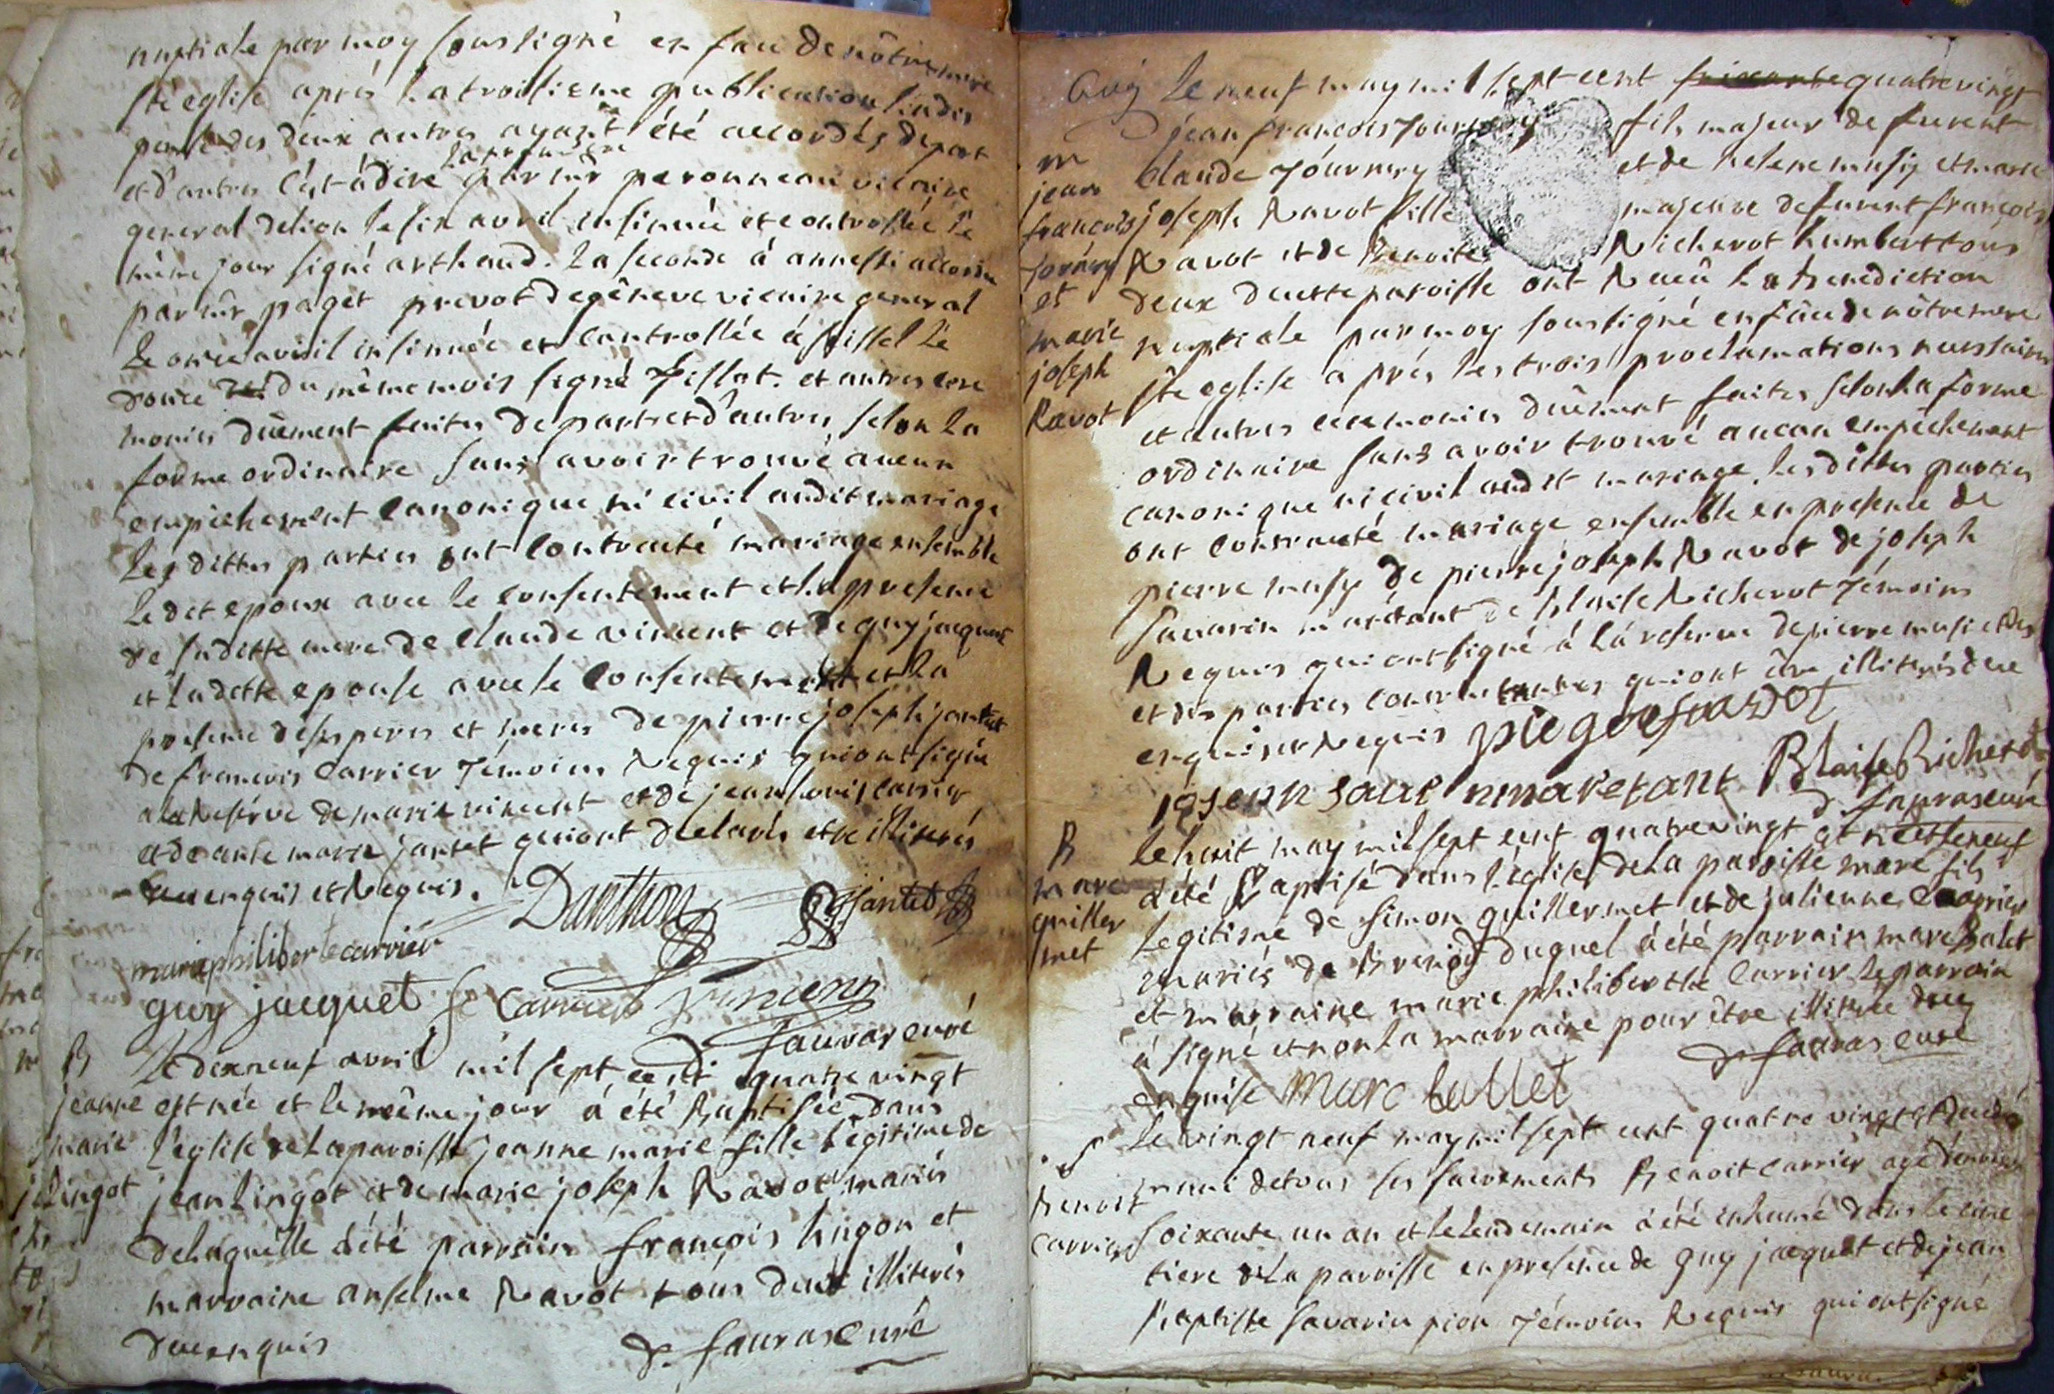 nuptiale par moy soussigné en face de nôtre mere
ste eglise aprés la troisieme publication la dis
pense des deux autres ayant été accordés de part
et d'autres c'est à dire la premiere par mr peronneau vicaire
general de lion le six avril insinuée et controllée le
même jour signé arthaud. la seconde à annessi accordée
par mr paget prevot de géneve vicaire general
le onze avril insinuée et controllée à seissel le
douze du même mois signé fillat. et autres cere
monies düement faites de part et d'autres selon la
forme ordinaire sans avoir trouvé aucun
empéchement canonique ni civil audit mariage
les dittes parties ont contracté mariage ensemble
le dit epoux avec le consentement et la presence
de saditte mere de claude vincent et de guy jacquet
et laditte epouse avec le consentement et la
presence de ses peres et meres de pierre joseph jantet
de francois carrier témoins requis qui ont signé
à la reserve de marie vincent et de jean louis carrier
et de anne marie jantet qui ont declarés etre illiterés
de ce enquis et requis. Danthon Jantet
marie philiberte carrier
guy jacquet fr Carrier vincent
favras curé
B Le dix neuf avril mil sept cent quatre vingt
jeanne est née et le même jour à été Baptisée dans
marie l'eglise de la paroisse jeanne marie fille légitime de
lingot jean lingot et de marie joseph Ravot mariés
de laquelle à été parrain françois lingon et
marraine anselme Ravot tous deux illiterés
de ce enquis d. favras curé
Cejourd'huy le neuf may mil sept cent quatre vingt
jean francois journery fils majeur de furent
m claude journery et de helene musy et marie
jean francois joseph Ravot fille majeure de furent françois
jornery Ravot et de Benoite Richerot humbert tous
et deux de cette paroisse ont Receû la benediction
marie nuptiale par moy soussigné en fâce de nôtre mere
joseph ste eglise a prés les trois proclamations necessaires
Ravot et autres ceremonies düement faites selon la forme
ordinaire sans avoir trouvé aucun empéchement
canonique ni civil audit mariage. les dittes parties
ont contracté mariage ensemble en presence de
pierre musy de pierre joseph Ravot de joseph
savarin maretant de blaise Richerot témoins
Requis qui ont signé à la reserve de pierre musi et des
et des parties contractantes qui ont dit être illiterés de ce
enquis et Requis
joseph savarin maretant Blaise Richerot
d. favras curé
B le huit may mil sept cent quatre vingt est né et le neuf
marc à été Baptisé dans l'église de la paroisse marc fils
guiller Legitime de simon guillermet et de julienne
met mariés de Brenod duquel à été parrain marc balet
et marraine marie philiberthe carrier le parrain
à signé et non la marraine pour être illiterée de ce
enquise marc ballet d. favras curé
Le vingt neuf may mil sept cent quatre vingt est decedé
muni de tous ses sacrements Benoit carrier agé d'environ
Benoit soixante un an et le lendemain à été inhumé dans le cime
carrier tiere de la paroisse en presence de guy jacquet et de jean
Baptiste savarin pion témoins Requis qui ont signé